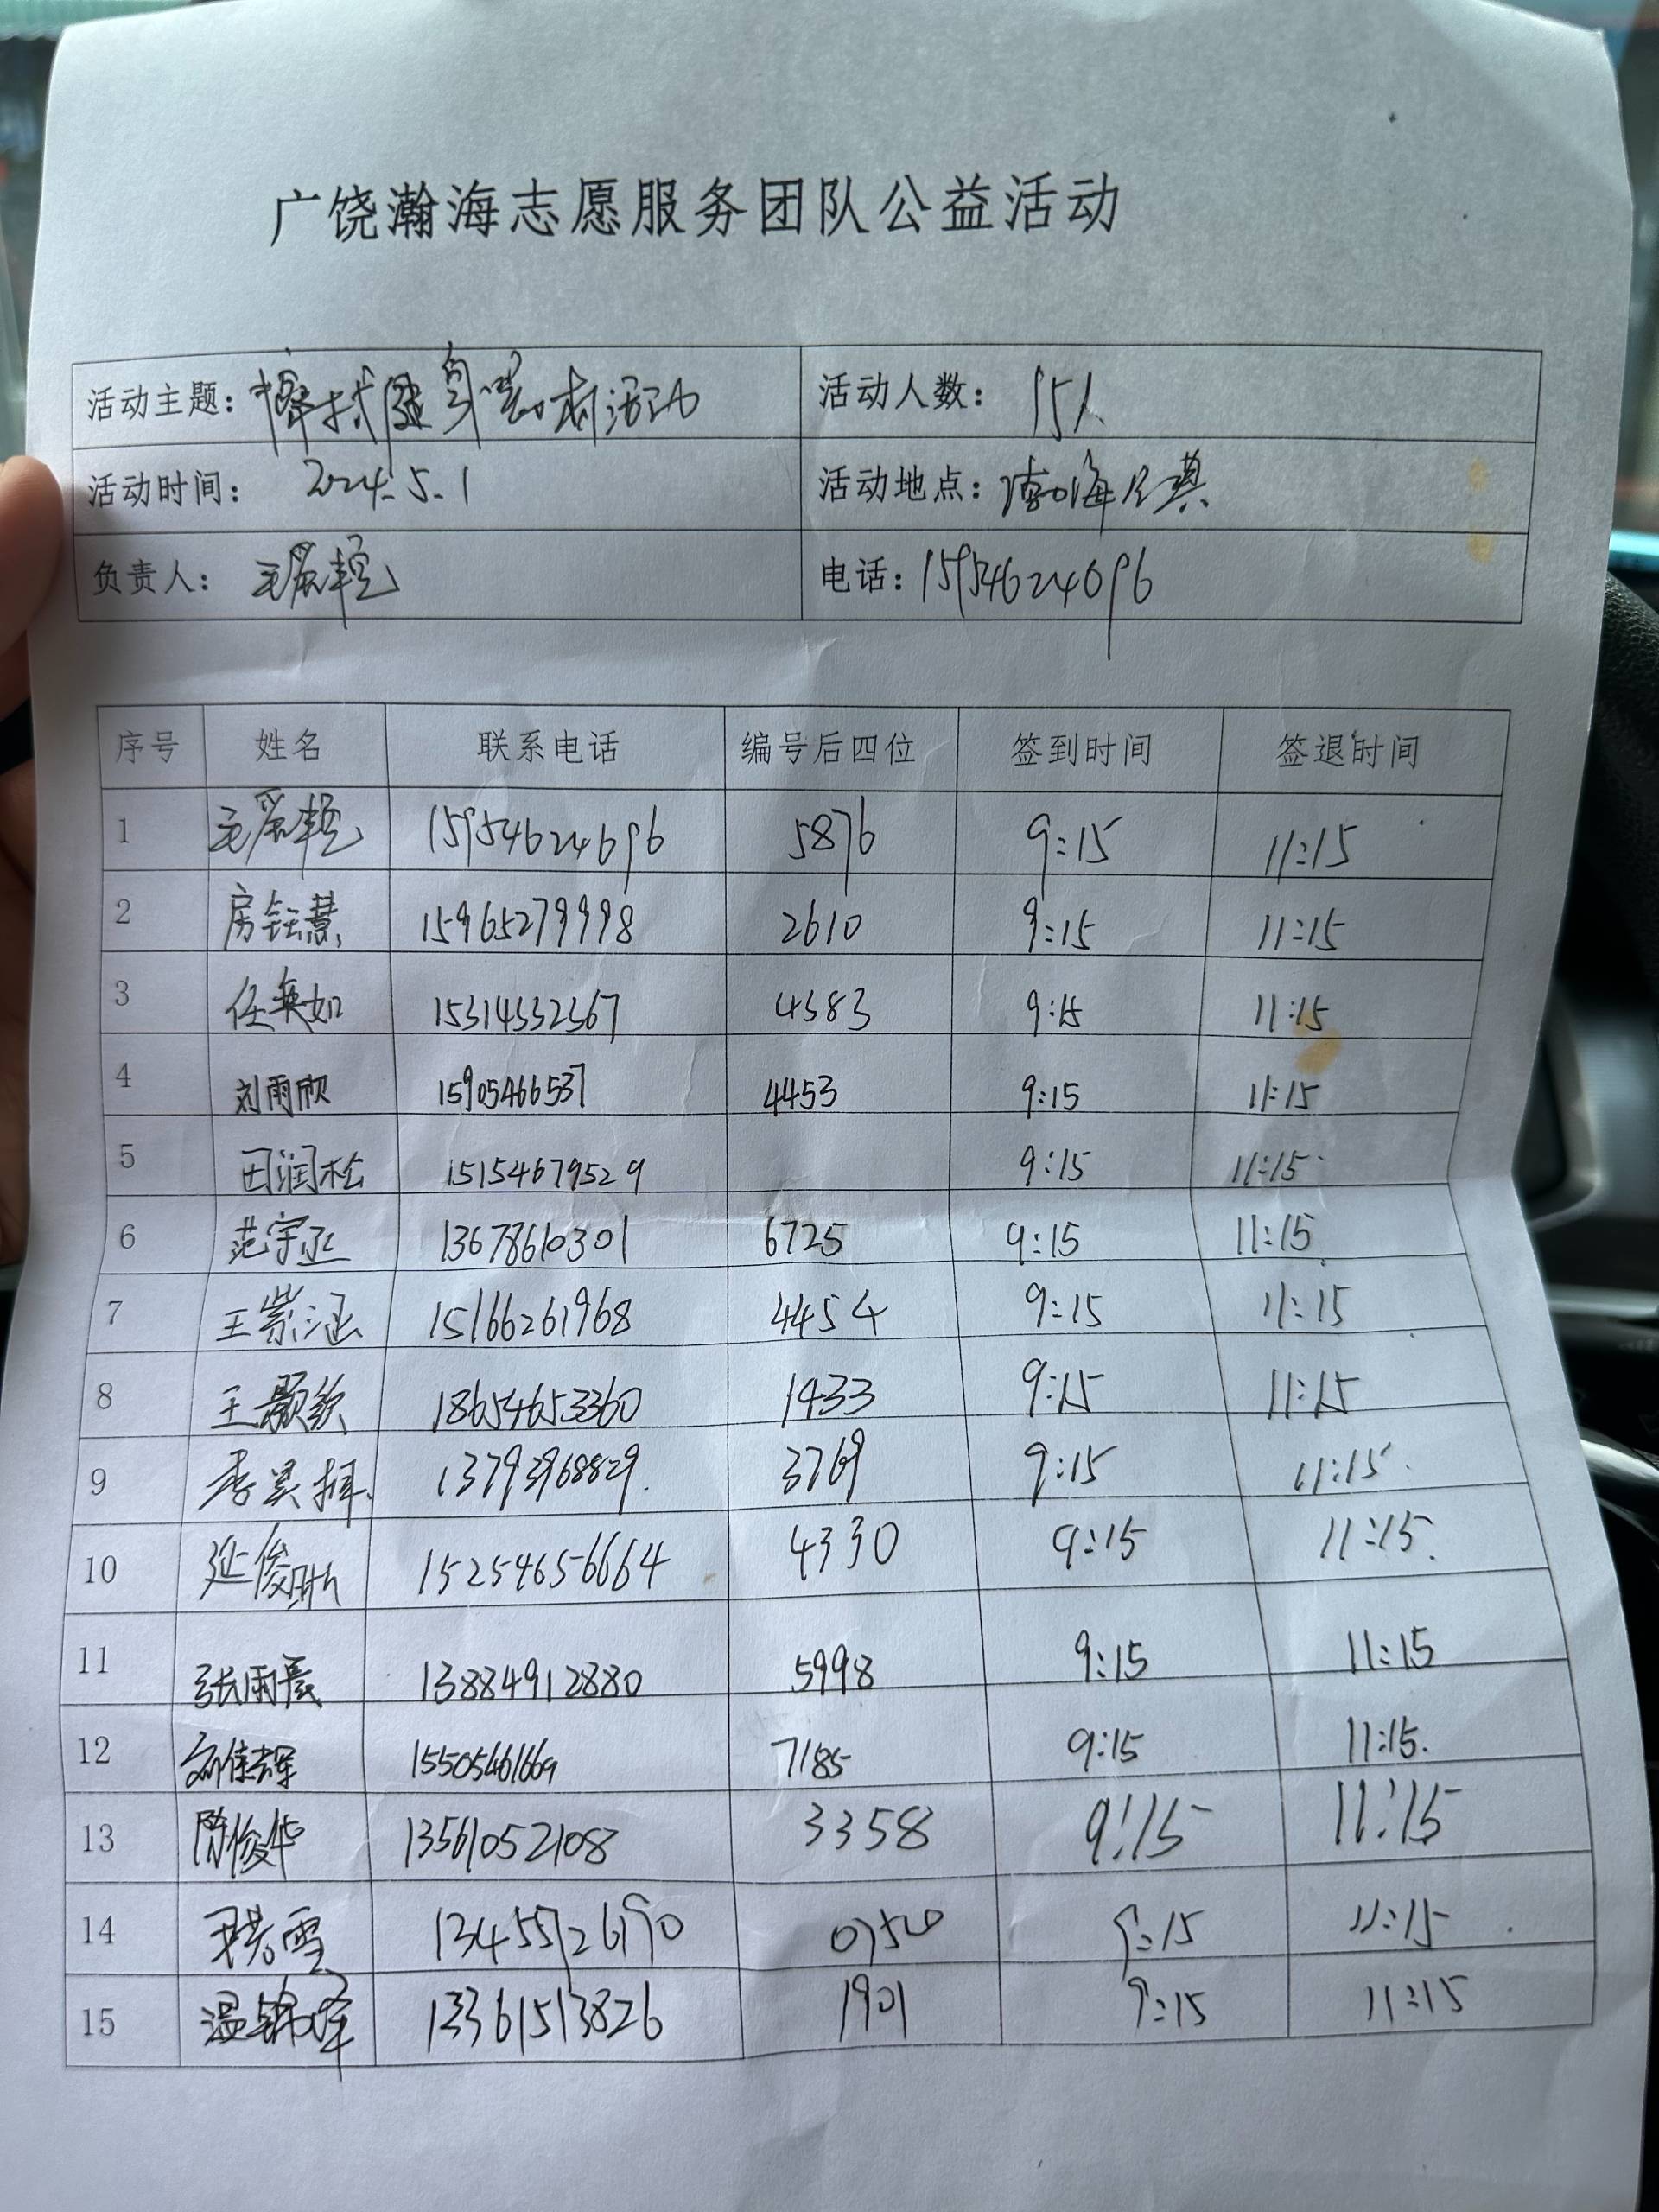 广饶瀚海志愿服务团队公益活动
活动主题： 健身器材活动 活动人数： 15人
活动时间： 2024.5.1 活动地点：
负责人： 电话：15954624696
序号 姓名 联系电话 编号后四位 签到时间 签退时间
1 15954624696 5876 9:15 11:15
2 房钰慧 15965279998 2610 9:15 11:15
3 任奕如 15314332367 4383 9:15 11:15
4 刘雨欣 15905466537 4453 9:15 11:15
5 田润松 15154679529 9:15 11:15
6 范宇丞 13678610301 6725 9:15 11:15
7 王崇涵 15166261968 4454 9:15 11:15
8 王颢钦 18654653360 1433 9:15 11:15
9 李昊择 13793968829 3769 9:15 11:15
10 延俊 15254656664 4330 9:15 11:15
11 张雨晨 13884912880 5998 9:15 11:15
12 刘佳辉 15505461669 7185 9:15 11:15
13 隋俊华 13561052108 3358 9:15 11:15
14 雪 13455726190 9:15 11:15
15 温锦峰 13361513826 1901 9:15 11:15